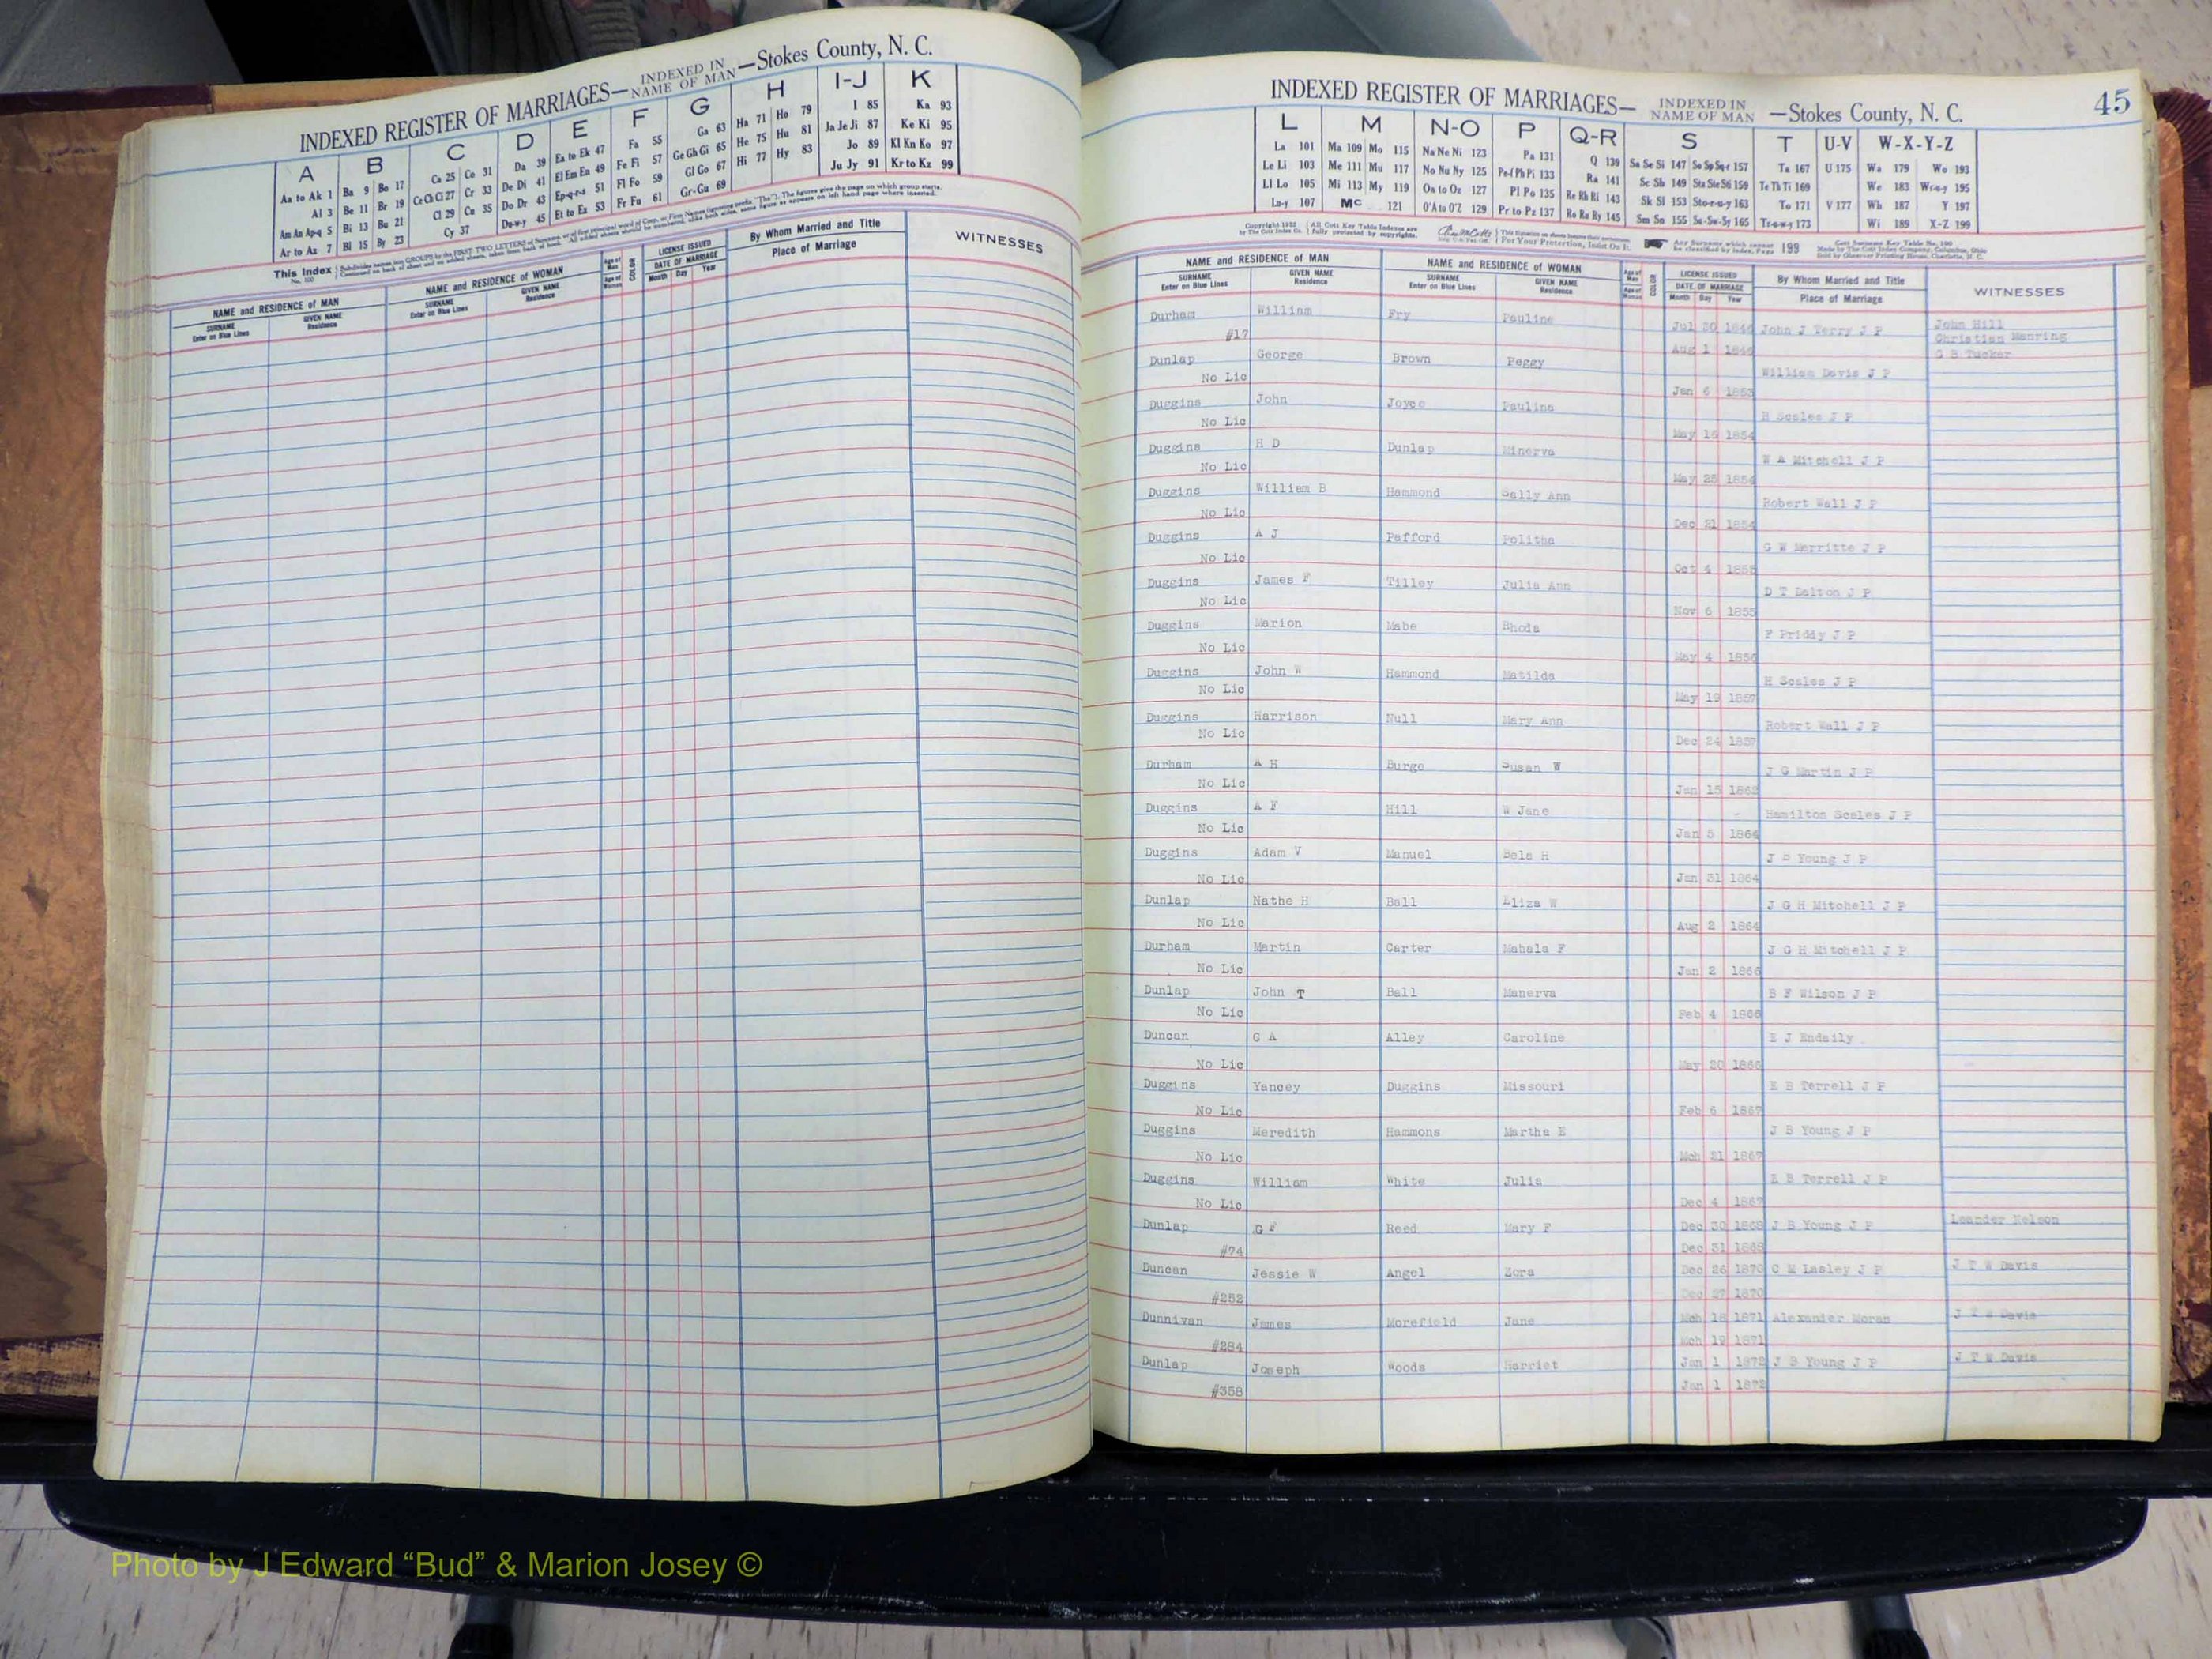 INDEXED REGISTER OF MARRIAGES— INDEXED IN NAME OF MAN —Stokes County, N. C.
A B C D E F G H I-J K
Aa to Ak 1 Ba 9 Bo 17 Ca 25 Co 31 Da 39 Ea to Ek 47 Fa 55 Ga 63 Ha 71 Ho 79 I 85 Ka 93
Al 3 Be 11 Br 19 Ce Ch Ci 27 Cr 33 De Di 41 El Em En 49 Fe Fi 57 Ge Gh Gi 65 He 75 Hu 81 Ja Je Ji 87 Ke Ki 95
Am An Ap-q 5 Bi 13 Bu 21 Cl 29 Cu 35 Do Dr 43 Ep-q-r-s 51 Fl Fo 59 Gl Go 67 Hi 77 Hy 83 Jo 89 Kl Kn Ko 97
Ar to Az 7 Bl 15 By 23 Cy 37 Du-w-y 45 Et to Ez 53 Fr Fu 61 Gr-Gu 69 Ju Jy 91 Kr to Kz 99
This Index No. 100
NAME and RESIDENCE of MAN NAME and RESIDENCE of WOMAN Age of Man Age of Woman COLOR LICENSE ISSUED DATE OF MARRIAGE By Whom Married and Title Place of Marriage WITNESSES
SURNAME Enter on Blue Lines GIVEN NAME Residence SURNAME Enter on Blue Lines GIVEN NAME Residence Month Day Year
INDEXED REGISTER OF MARRIAGES— INDEXED IN NAME OF MAN —Stokes County, N. C. 45
L M N-O P Q-R S T U-V W-X-Y-Z
La 101 Ma 109 Mo 115 Na Ne Ni 123 Pa 131 Q 139 Sa Se Si 147 So Sp Sq-r 157 Ta 167 U 175 Wa 179 Wo 193
Le Li 103 Me 111 Mu 117 No Nu Ny 125 Pe-f Ph Pi 133 Ra 141 Sc Sh 149 Sta Ste Sti 159 Te Th Ti 169 We 183 Wr-u-y 195
Ll Lo 105 Mi 113 My 119 Oa to Oz 127 Pl Po 135 Re Rh Ri 143 Sk Sl 153 Sto-r-u-y 163 To 171 V 177 Wh 187 Y 197
Lu-y 107 Mc 121 O'A to O'Z 129 Pr to Pz 137 Ro Ru Ry 145 Sm Sn 155 Su-Sw-Sy 165 Tr-u-w-y 173 Wi 189 X-Z 199
Any Surname which cannot be classified by index, Page 199
NAME and RESIDENCE of MAN NAME and RESIDENCE of WOMAN Age of Man Age of Woman COLOR LICENSE ISSUED DATE OF MARRIAGE By Whom Married and Title Place of Marriage WITNESSES
SURNAME Enter on Blue Lines GIVEN NAME Residence SURNAME Enter on Blue Lines GIVEN NAME Residence Month Day Year
Durham William Fry Pauline Jul 30 1846 John J Terry J P John Hill
#17 Aug 1 1846 Christian Manring
G B Tucker
Dunlap George Brown Peggy William Davis J P
No Lic Jan 6 1853
Duggins John Joyce Paulina H Scales J P
No Lic May 16 1854
Duggins H D Dunlap Minerva W A Mitchell J P
No Lic May 25 1854
Duggins William B Hammond Sally Ann Robert Wall J P
No Lic Dec 21 1854
Duggins A J Pafford Politha G W Merritte J P
No Lic Oct 4 1855
Duggins James F Tilley Julia Ann D T Dalton J P
No Lic Nov 6 1855
Duggins Marion Mabe Rhoda F Priddy J P
No Lic May 4 1856
Duggins John W Hammond Matilda H Scales J P
No Lic May 19 1857
Duggins Harrison Null Mary Ann Robert Wall J P
No Lic Dec 24 1857
Durham A H Burge Susan W J G Martin J P
No Lic Jan 15 1862
Duggins A F Hill W Jane Hamilton Scales J P
No Lic Jan 5 1864
Duggins Adam V Manuel Bela H J B Young J P
No Lic Jan 31 1864
Dunlap Nathe H Ball Eliza W J G H Mitchell J P
No Lic Aug 2 1864
Durham Martin Carter Mahala F J G H Mitchell J P
No Lic Jan 2 1866
Dunlap John T Ball Manerva B F Wilson J P
No Lic Feb 4 1866
Duncan G A Alley Caroline E J Endaily
No Lic May 20 1866
Duggins Yancey Duggins Missouri E B Terrell J P
No Lic Feb 6 1867
Duggins Meredith Hammons Martha E J B Young J P
No Lic Mch 21 1867
Duggins William White Julia E B Terrell J P
No Lic Dec 4 1867
Dunlap G F Reed Mary F Dec 30 1868 J B Young J P Leander Nelson
#74 Dec 31 1868
Duncan Jessie W Angel Zora Dec 26 1870 C M Lasley J P J T W Davis
#252 Dec 27 1870
Dunnivan James Morefield Jane Mch 18 1871 Alexander Moran J T W Davis
#284 Mch 19 1871
Dunlap Joseph Woods Harriet Jan 1 1872 J B Young J P J T W Davis
#358 Jan 1 1872
Photo by J Edward “Bud” & Marion Josey ©